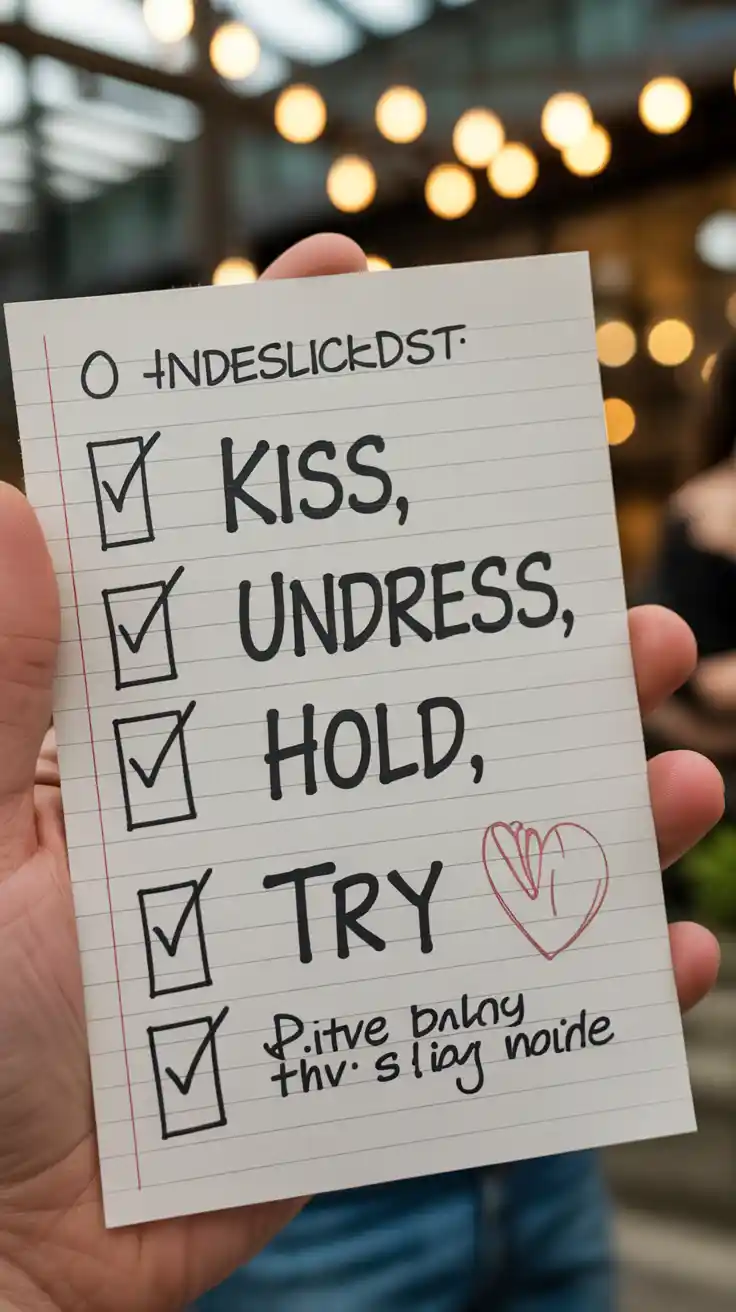 O HNDESLICKDST.
KISS,
UNDRESS,
HOLD,
TRY